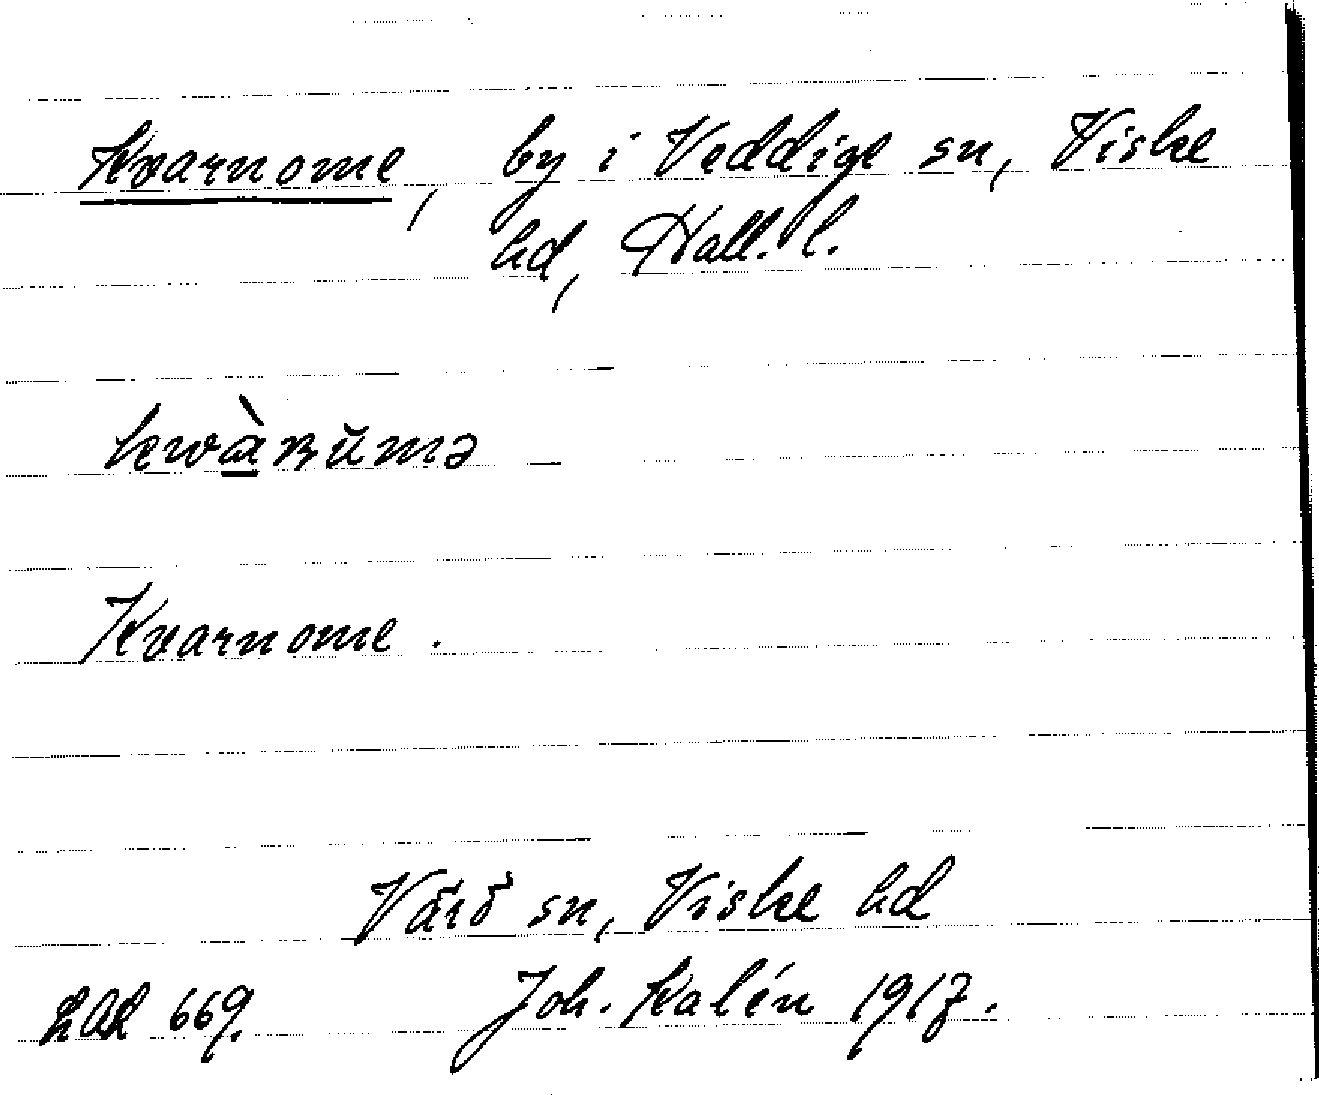 Kvarnome, by i Veddige sn, Viske
hd, Hall. l.
Kvarnome.
Värö sn, Viske hd
669. Joh. Kalén 1917.